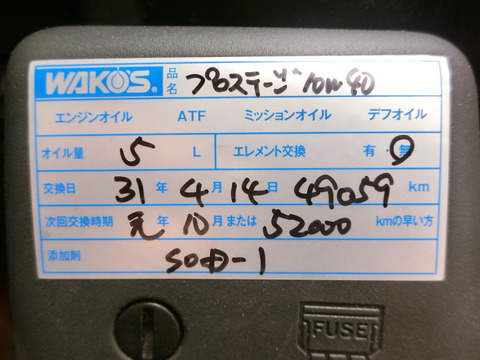 WAKO'S® 品名 プロステージ 10W40
エンジンオイル ATF ミッションオイル デフオイル
オイル量 5 L エレメント交換 有・無
交換日 31年 4月 14日 49059 km
次回交換時期 元年 10月または 52000 kmの早い方
添加剤 SOD-1
FUSE